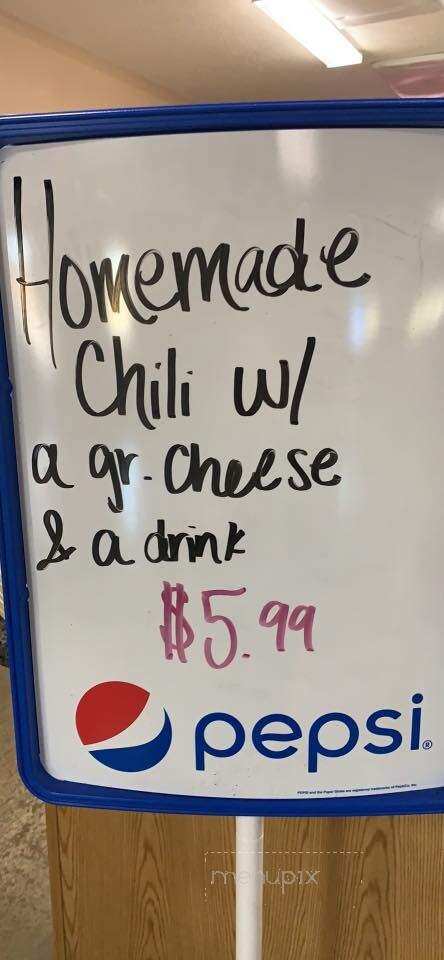 Homemade
Chili w/
a gr. cheese
& a drink
$5.99
pepsi®
menupix